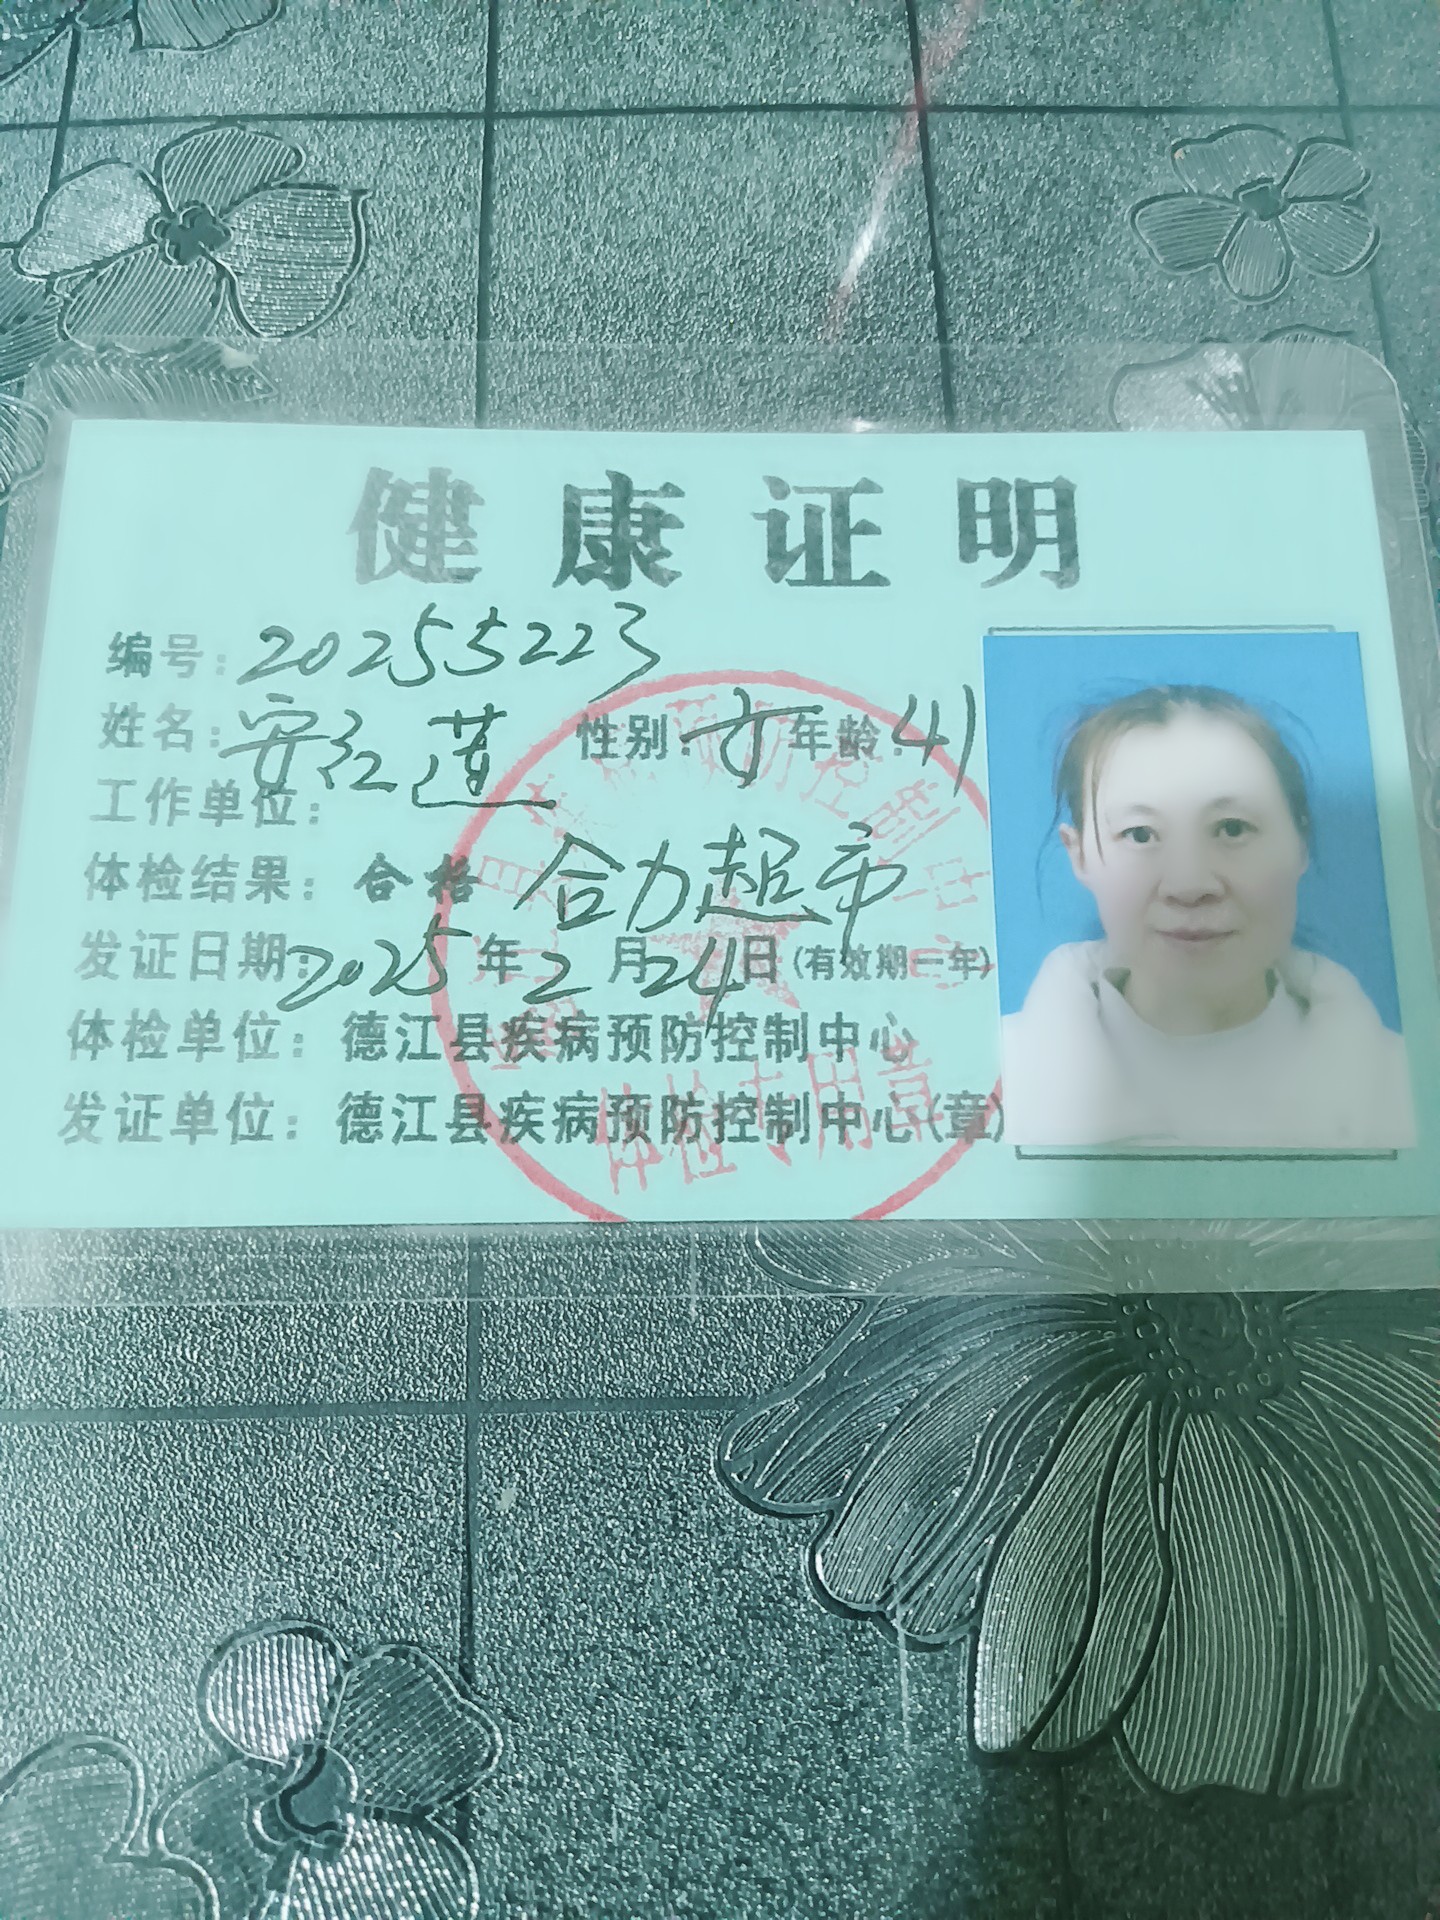 健康证明
编号：20255223
姓名：安红莲 性别：女 年龄：41
工作单位：
合力超市
体检结果：合格
发证日期：2025年2月24日（有效期一年）
体检单位：德江县疾病预防控制中心
发证单位：德江县疾病预防控制中心（章）
体检专用章